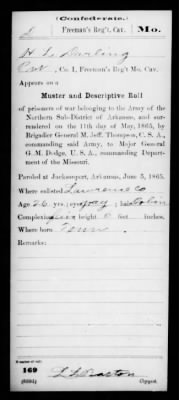 (Confederate.)
D Freeman's Reg't, Cav. Mo.
H L Darling
Co. I, Freeman's Reg't Mo. Cav.
Appears on a
Muster and Descriptive Roll
of prisoners of war belonging to the Army of the
Northern Sub-District of Arkansas, and sur-
rendered on the 11th day of May, 1865, by
Brigadier General M. Jeff. Thompson, C. S. A.,
commanding said Army, to Major General
G. M. Dodge, U. S. A., commanding Depart-
ment of the Missouri.
Paroled at Jacksonport, Arkansas, June 5, 1865.
Where enlisted Lawrence Co
Age 26 yrs; eyes gray; hair
Complexion fair; height 6 feet inches.
Where born Tenn
Remarks:
Number of roll:
169
(639b)
Copyist.